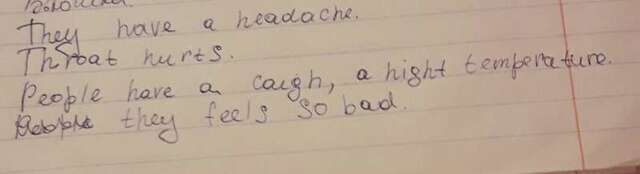 They have a headache.
Throat hurts.
People have a caugh, a hight temperature.
they feels so bad.